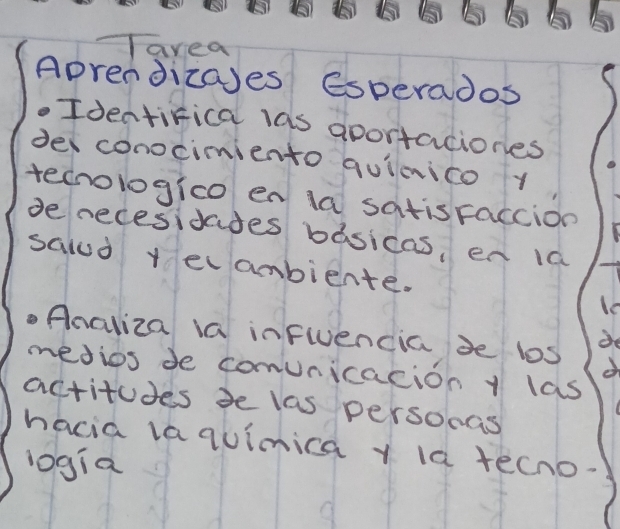 Tarea
Aprendizajes Esperados
• Identifica las aportaciones
del conocimiento químico y
tecnologico en la satisfacción
de necesidades básicas, en la
salud y el ambiente.
• Analiza la influencia de los
medios de comunicación y las
actitudes de las personas
hacia la química y la tecno-
logía